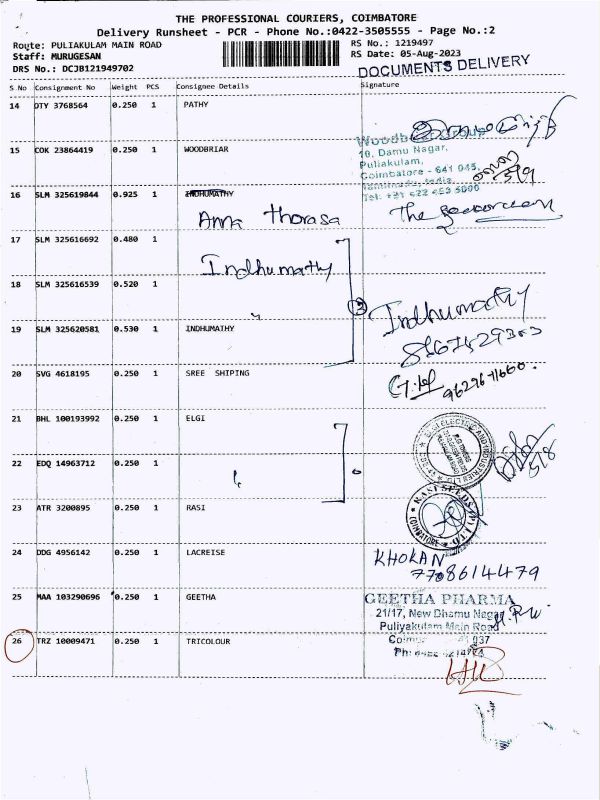 THE PROFESSIONAL COURIERS, COIMBATORE
Delivery Runsheet - PCR - Phone No.:0422-3505555 - Page No.:2
Route: PULIAKULAM MAIN ROAD
RS No.: 1219497
Staff: MURUGESAN
RS Date: 05-Aug-2023
DRS No.: DCJB121949702
DOCUMENTS DELIVERY
S No Consignment No Weight PCS Consignee Details Signature
14 DTY 3768564 0.250 1 PATHY
15 COK 23864419 0.250 1 WOODBRIAR
Woodbriar Group
18, Damu Nagar,
Puliakulam,
Coimbatore - 641 045,
Tamilnadu, India
16 SLM 325619844 0.925 1 INDHUMATHY
Anna Tharasa
The
17 SLM 325616692 0.480 1
Indhumathy
18 SLM 325616539 0.520 1 "
3
Indhumathy
19 SLM 325620581 0.530 1 INDHUMATHY
20 SVG 4618195 0.250 1 SREE SHIPING
9629671660.
21 BHL 100193992 0.250 1 ELGI
22 EDQ 14963712 0.250 1 "
23 ATR 3200895 0.250 1 RASI
RASI SEEDS (P) LTD.
COIMBATORE
24 DDG 4956142 0.250 1 LACREISE
KHOKAN
7708614479
25 MAA 103290696 0.250 1 GEETHA
GEETHA PHARMA
21/17, New Dhamu Nagar
Puliyakulam Main Road
26 TRZ 10009471 0.250 1 TRICOLOUR